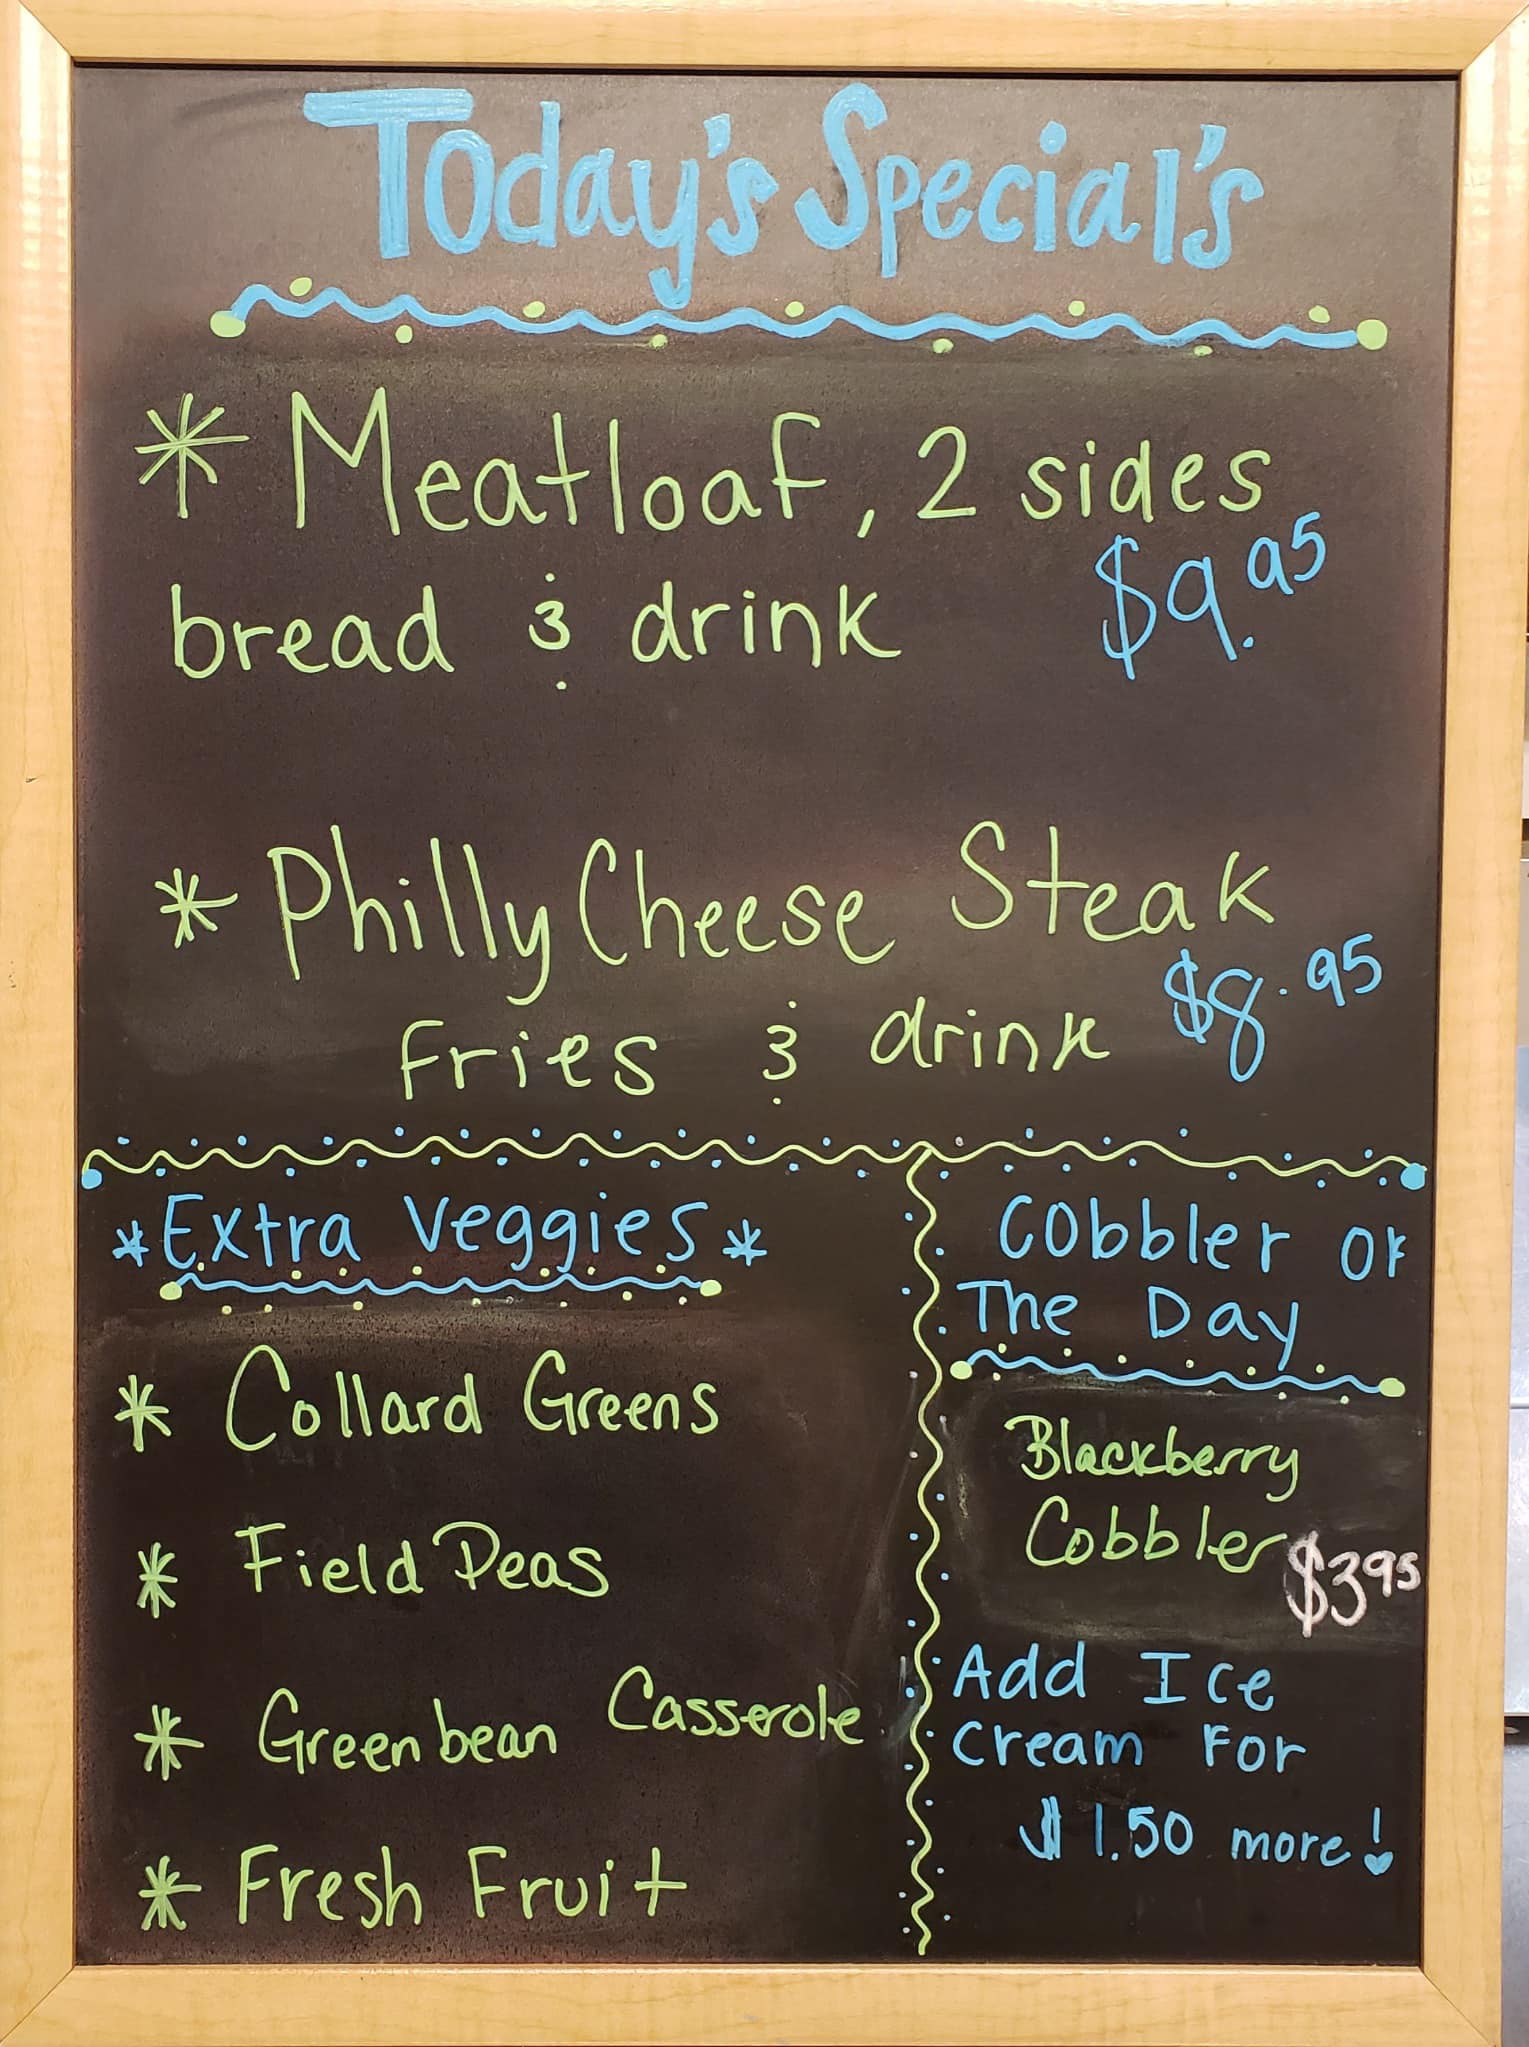 Today's Special's
* Meatloaf, 2 sides
bread & drink $9.95
* Philly Cheese Steak
Fries & drink $8.95
*Extra Veggies*
* Collard Greens
* Field Peas
* Greenbean Casserole
* Fresh Fruit
Cobbler OF
The Day
Blackberry
Cobbler $3.95
Add Ice
Cream For
$1.50 more!